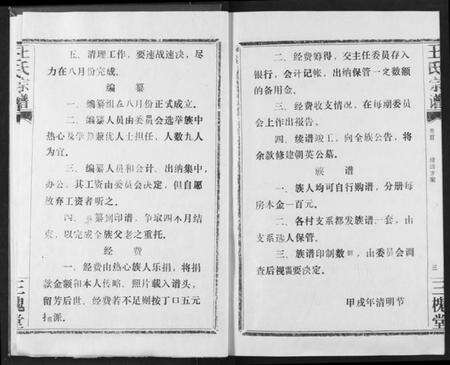 王氏宗谱
五、清理工作，要速战速决，尽
力在八月份完成。
编纂
一、编纂组在八月份正式成立。
二、编纂人员由委员会选举族中
热心及学兼优人士担任，人数九人
为宜。
三、编纂人员和会计、出纳集中，
办公，其工资由委员会决定，但自愿
放弃工资者听之。
四、纂到印谱，争取四个月结
束，以完成全族父老之重托。
经费
一、经费由热心族人乐捐，将捐
款金额和本人传略、照片载入谱头，
留芳后世。经费若不足则按丁口五元
派。
三槐堂
二、经费筹得，交主任委员存入
银行，会计记帐，出纳保管一定数额
的备用金。
三、经费收支情况，在每期委员
会上作出报告。
四、续谱竣工，向全族公告，将
余款修建朝英公墓。
族谱
一、族人均可自行购谱，分册每
房本金一百元。
二、各村支系都发族谱一套，由
支系派人保管。
三、族谱印制数，由委员会调
查后视需要决定。
甲戌年清明节
王氏宗谱
卷首
续谱方案
三
三槐堂